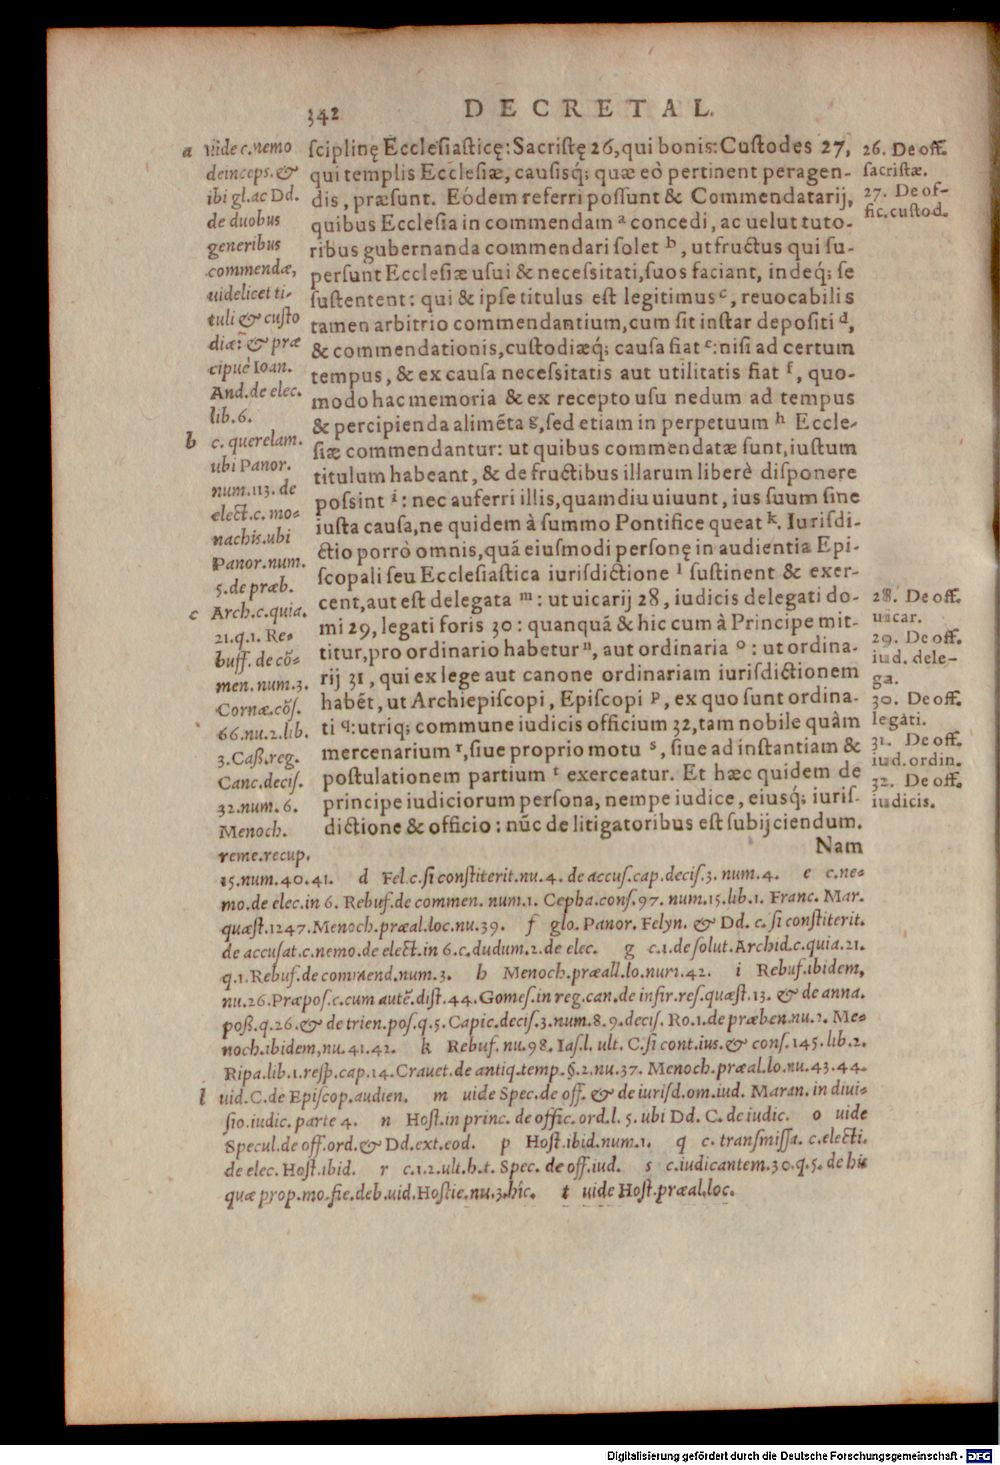 342 DECRETAL.
ſciplinę Eccleſiaſticę: Sacriſtę 26, qui bonis: Cuſtodes 27,
qui templis Eccleſiæ, cauſisq́; quæ eò pertinent peragen-
dis, præſunt. Eódem referri poſſunt & Commendatarij,
quibus Eccleſia in commendam ᵃ concedi, ac uelut tuto-
ribus gubernanda commendari ſolet ᵇ, ut fructus qui ſu-
perſunt Eccleſiæ uſui & neceſsitati, ſuos faciant, indeq́; ſe
ſuſtentent: qui & ipſe titulus eſt legitimus ᶜ, reuocabilis
tamen arbitrio commendantium, cum ſit inſtar depoſiti ᵈ,
& commendationis, cuſtodiæq́; cauſa fiat ᵉ: niſi ad certum
tempus, & ex cauſa neceſsitatis aut utilitatis fiat ᶠ, quo-
modo hac memoria & ex recepto uſu nedum ad tempus
& percipienda alimẽta ᵍ, ſed etiam in perpetuum ʰ Eccle-
ſiæ commendantur: ut quibus commendatæ ſunt, iuſtum
titulum habeant, & de fructibus illarum liberè diſponere
poſsint ⁱ: nec auferri illis, quamdiu uiuunt, ius ſuum ſine
iuſta cauſa, ne quidem à ſummo Pontifice queat ᵏ. Iuriſdi-
ctio porrò omnis, quã eiuſmodi perſonę in audientia Epi-
ſcopali ſeu Eccleſiaſtica iuriſdictione ˡ ſuſtinent & exer-
cent, aut eſt delegata ᵐ: ut uicarij 28, iudicis delegati do-
mi 29, legati foris 30: quanquã & hic cum à Principe mit-
titur, pro ordinario habetur ⁿ, aut ordinaria ᵒ: ut ordina-
rij 31, qui ex lege aut canone ordinariam iuriſdictionem
habẽt, ut Archiepiſcopi, Epiſcopi ᵖ, ex quo ſunt ordina-
ti q: utriq; commune iudicis officium 32, tam nobile quàm
mercenarium ʳ, ſiue proprio motu ˢ, ſiue ad inſtantiam &
poſtulationem partium ᵗ exerceatur. Et hæc quidem de
principe iudiciorum perſona, nempe iudice, eiusq́; iuriſ-
dictione & officio: nũc de litigatoribus eſt ſubijciendum.
Nam
26. De off.
ſacriſtæ.
27. De of-
fic. cuſtod.
28. De off.
uicar.
29. De off.
iud. dele-
ga.
30. De off.
legati.
31. De off.
iud. ordin.
32. De off.
iudicis.
a uide c. nemo
deinceps. &
ibi gl. ac Dd.
de duobus
generibus
commendæ,
uidelicet ti-
tuli & cuſto
diæ: & præ
cipuè Ioan.
And. de elec.
lib. 6.
b c. querelam.
ubi Panor.
num. 113. de
elect. c. mo-
nachis. ubi
Panor. num.
5. de præb.
c Arch. c. quia.
21. q. 1. Re-
buff. de cõ-
men. num. 3.
Cornæ. cõſ.
66. nu. 2. lib.
3. Caß. reg.
Canc. deciſ.
32. num. 6.
Menoch.
reme. recup.
15. num. 40. 41. d Fel. c. ſi conſtiterit. nu. 4. de accuſ. cap. deciſ. 3. num. 4. e c. ne-
mo. de elec. in 6. Rebuf. de commen. num. 1. Cepha. conſ. 97. num. 15. lib. 1. Franc. Mar.
quæſt. 1247. Menoch. præal. loc. nu. 39. f glo. Panor. Felyn. & Dd. c. ſi conſtiterit.
de accuſat. c. nemo. de elect. in 6. c. dudum. 2. de elec. g c. 1. de ſolut. Archid. c. quia. 21.
q. 1. Rebuf. de commend. num. 3. h Menoch. præall. lo. num. 42. i Rebuf. ibidem,
nu. 26. Præpoſ. c. cum autẽ. diſt. 44. Gomeſ. in reg. can. de infir. reſ. quæſt. 13. & de anna.
poß. q. 26. & de trien. poſ. q. 5. Capic. deciſ. 3. num. 8. 9. deciſ. Ro. 1. de præben. nu. 2. Me-
noch. ibidem, nu. 41. 42. k Rebuf. nu. 98. Iaſ. l. ult. C. ſi cont. ius. & conſ. 145. lib. 2.
Ripa. lib. 1. reſp. cap. 14. Crauet. de antiq. temp. §. 2. nu. 37. Menoch. præal. lo. nu. 43. 44.
l uid. C. de Epiſcop. audien. m uide Spec. de off. & de iuriſd. om. iud. Maran. in diui-
ſio. iudic. parte 4. n Hoſt. in princ. de offic. ord. l. 5. ubi Dd. C. de iudic. o uide
Specul. de off. ord. & Dd. ext. eod. p Hoſt. ibid. num. 1. q c. tranſmiſſa. c. electi.
de elec. Hoſt. ibid. r c. 1. 2. ult. h. t. Spec. de off. iud. s c. iudicantem. 30. q. 5. de his
quæ prop. mo. fie. deb. uid. Hoſtie. nu. 3. hîc. t uide Hoſt. præal. loc.
Digitalisierung gefördert durch die Deutsche Forschungsgemeinschaft - DFG